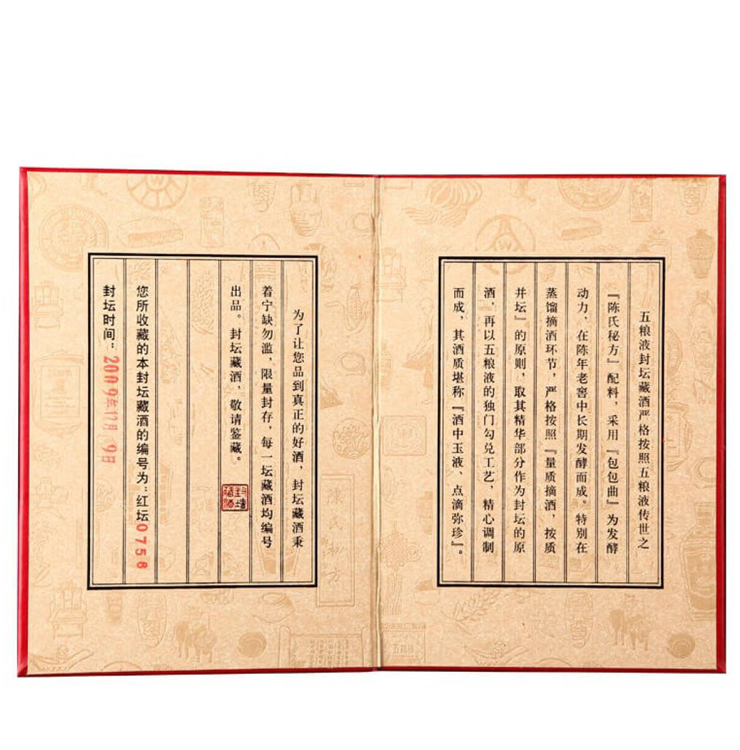 五粮液封坛藏酒严格按照五粮液传世之
『陈氏秘方』配料，采用『包包曲』为发酵
动力，在陈年老窖中长期发酵而成。特别在
蒸馏摘酒环节，严格按照『量质摘酒，按质
并坛』的原则，取其精华部分作为封坛的原
酒，再以五粮液的独门勾兑工艺，精心调制
而成，其酒质堪称『酒中玉液、点滴弥珍』。
为了让您品到真正的好酒，封坛藏酒秉
着宁缺勿滥，限量封存，每一坛藏酒均编号
出品。封坛藏酒，敬请鉴藏。
您所收藏的本封坛藏酒的编号为：红坛0758
封坛时间：2009年12月9日